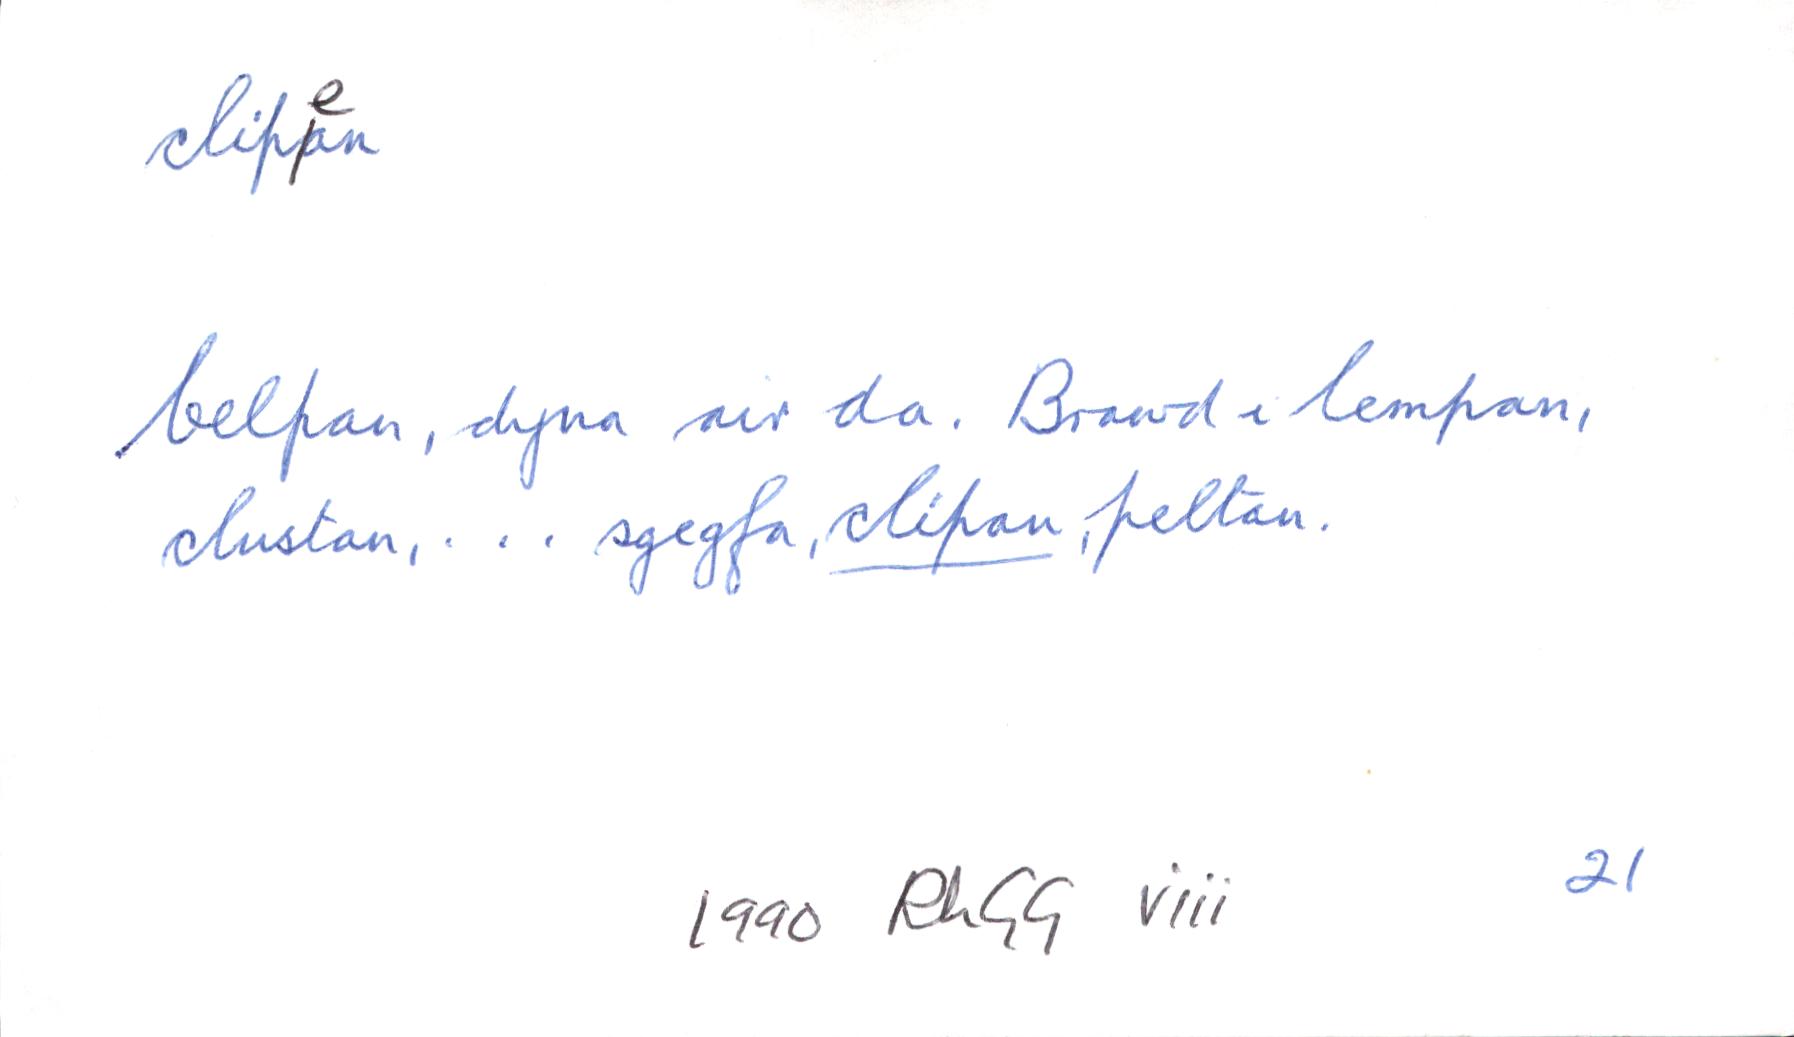 e
clippan
belpan, dyna air da. Brawd i lempan,
clustan, . . . sgegfa, clipan, peltan.
21
1990 RhGG viii